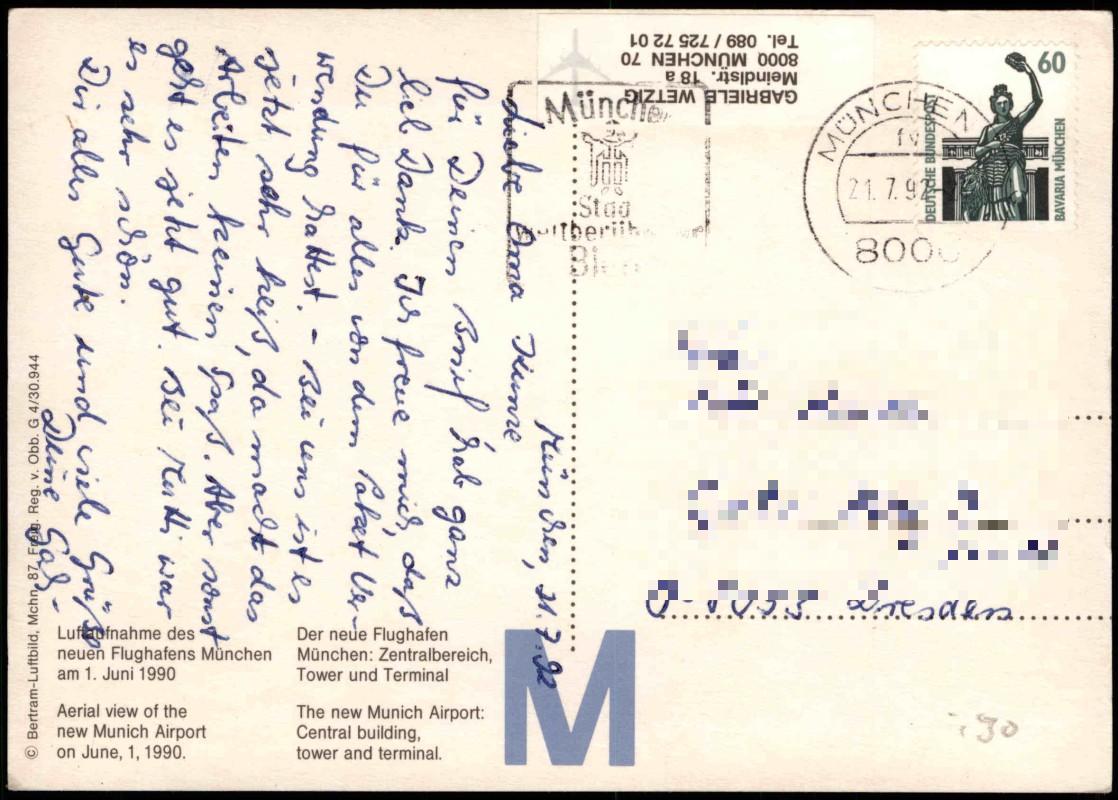 GABRIELE WETZIG
Meindlstr. 18 a
8000 MÜNCHEN 70
Tel. 089 / 725 72 01
München
Stad
weltberüh
Bie
MÜNCHEN 1
fv
21.7.92
8000
60
DEUTSCHE BUNDESP
BAVARIA MÜNCHEN
München, 21.7.92
Liebe Oma Kunze
für Deinen Brief hab ganz
lieb Dank. Ich freue mich, daß
Du für alles von dem Paket Ver-
wendung hattest. - Bei uns ist es
jetzt sehr heiß, da macht das
Arbeiten keinen Spaß. Aber sonst
geht es jetzt gut. Bei Mutti war
es sehr schön.
Dir alles Gute und viele Grüße
Deine Gab-
Dresden
Luftaufnahme des
neuen Flughafens München
am 1. Juni 1990
Aerial view of the
new Munich Airport
on June, 1, 1990.
Der neue Flughafen
München: Zentralbereich,
Tower und Terminal
The new Munich Airport:
Central building,
tower and terminal.
M
© Bertram-Luftbild, Mchn. 87, Freig. Reg. v. Obb. G 4/30.944